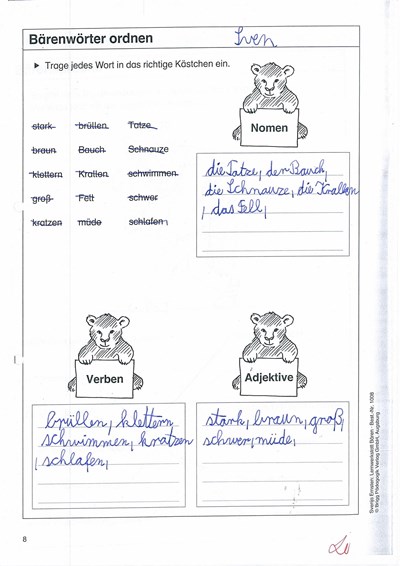 Bärenwörter ordnen Sven
▶ Trage jedes Wort in das richtige Kästchen ein.
stark brüllen Tatze
braun Bauch Schnauze
klettern Krallen schwimmen
groß Fell schwer
kratzen müde schlafen
Nomen
die Tatze, der Bauch,
die Schnauze, die Krallen
, das Fell,
Verben
brüllen, klettern
schwimmen, kratzen
, schlafen,
Adjektive
stark, braun, groß,
schwer, müde,
Svenja Ernsten: Lernwerkstatt Bären · Best.-Nr. 1008
© Brigg Pädagogik Verlag GmbH, Augsburg
8